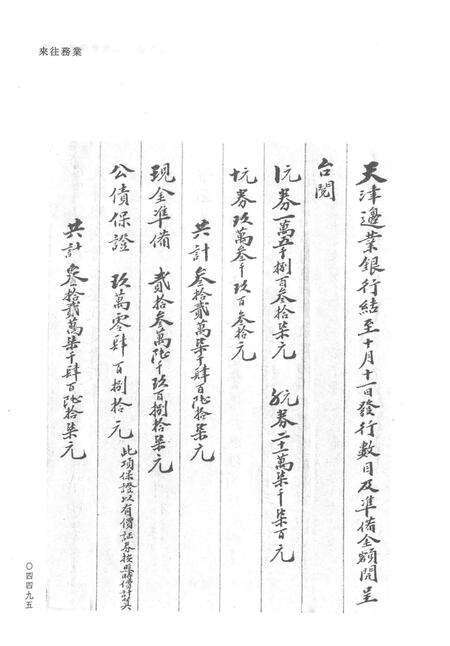 來往務業
天津邊業銀行結至十月十一日發行數目及準備金額開呈
台閱
券一萬五千捌百叁拾柒元 券二十一萬柒千柒百元
券玖萬叁千玖百叁拾元
共計叁拾貳萬柒千肆百陸拾柒元
現金準備 貳拾叁萬陸千玖百捌拾柒元
公債保證 玖萬零肆百捌拾元 此項保證以有價証券按時價計算
共計叁拾貳萬柒千肆百陸拾柒元
〇四四九五